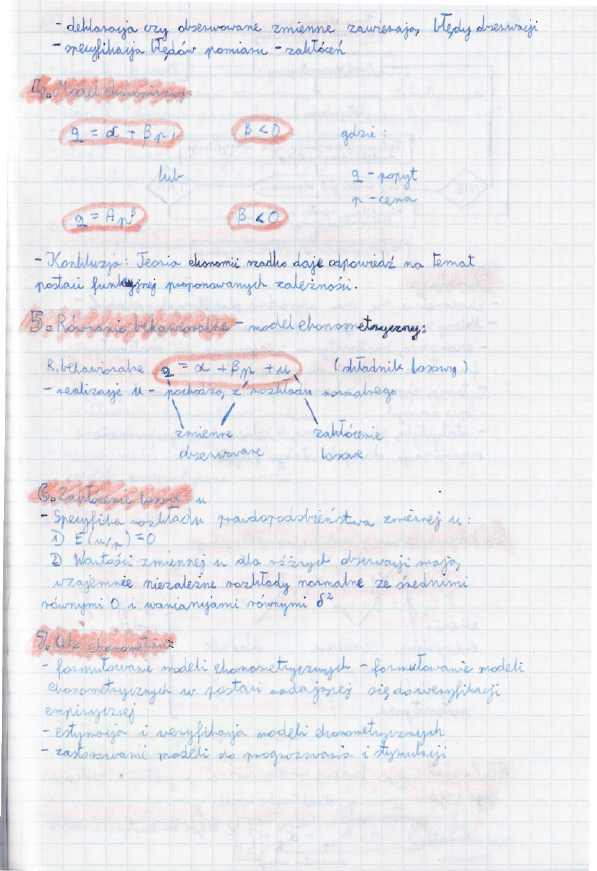 - deklaracja czy obserwowane zmienne zawierają błędy obserwacji
- specyfikacja błędów pomiaru - zakłóceń
4. Model ekonomiczny:
q = α + βp, β < 0 gdzie:
lub q - popyt
p - cena
q = Ap^β, β < 0
- Konkluzja: Teoria ekonomii rzadko daje odpowiedź na temat
postaci funkcyjnej proponowanych zależności.
5. Równanie behawioralne - model ekonometryczny:
R. behawioralne q = α + βp + u (składnik losowy)
- realizacje u - pochodzą z rozkładu normalnego
zmienne zakłócenie
obserwowane losowe
6. Zakłócenie losowe: u
- Specyfika rozkładu prawdopodobieństwa zmiennej u:
1) E(u/p) = 0
2) Wartości zmiennej u dla różnych obserwacji mają
wzajemnie niezależne rozkłady normalne ze średnimi
równymi 0 i wariancjami równymi δ²
7. Cele ekonometrii:
- formułowanie modeli ekonometrycznych - formułowanie modeli
ekonometrycznych w postaci nadającej się do weryfikacji
empirycznej
- estymacja i weryfikacja modeli ekonometrycznych
- zastosowanie modeli do prognozowania i symulacji